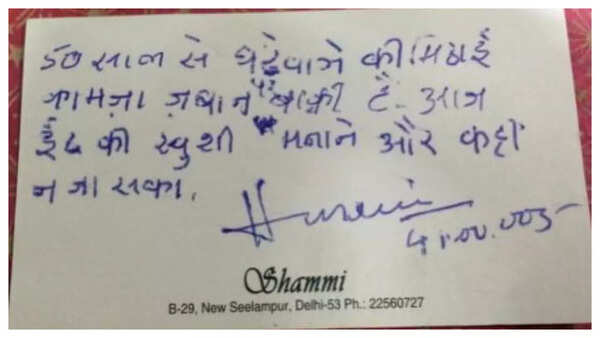 50 साल से घंटेवाले की मिठाई
का मज़ा ज़बान पर बाक़ी है. आज
ईद की खुशी मनाने और कहीं
न जा सका.
Husain
Shammi
B-29, New Seelampur, Delhi-53 Ph.: 22560727